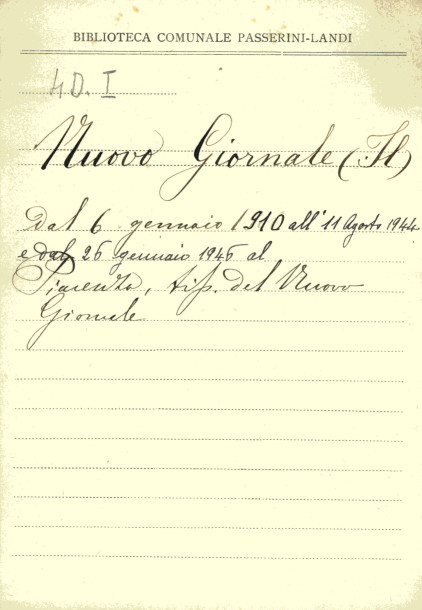 BIBLIOTECA COMUNALE PASSERINI-LANDI
4D. I
Nuovo Giornale (Il)
Dal 6 gennaio 1910 all'11 Agosto 1944
e dal 26 gennaio 1945 al
Piacenza, tip. del Nuovo
Giornale